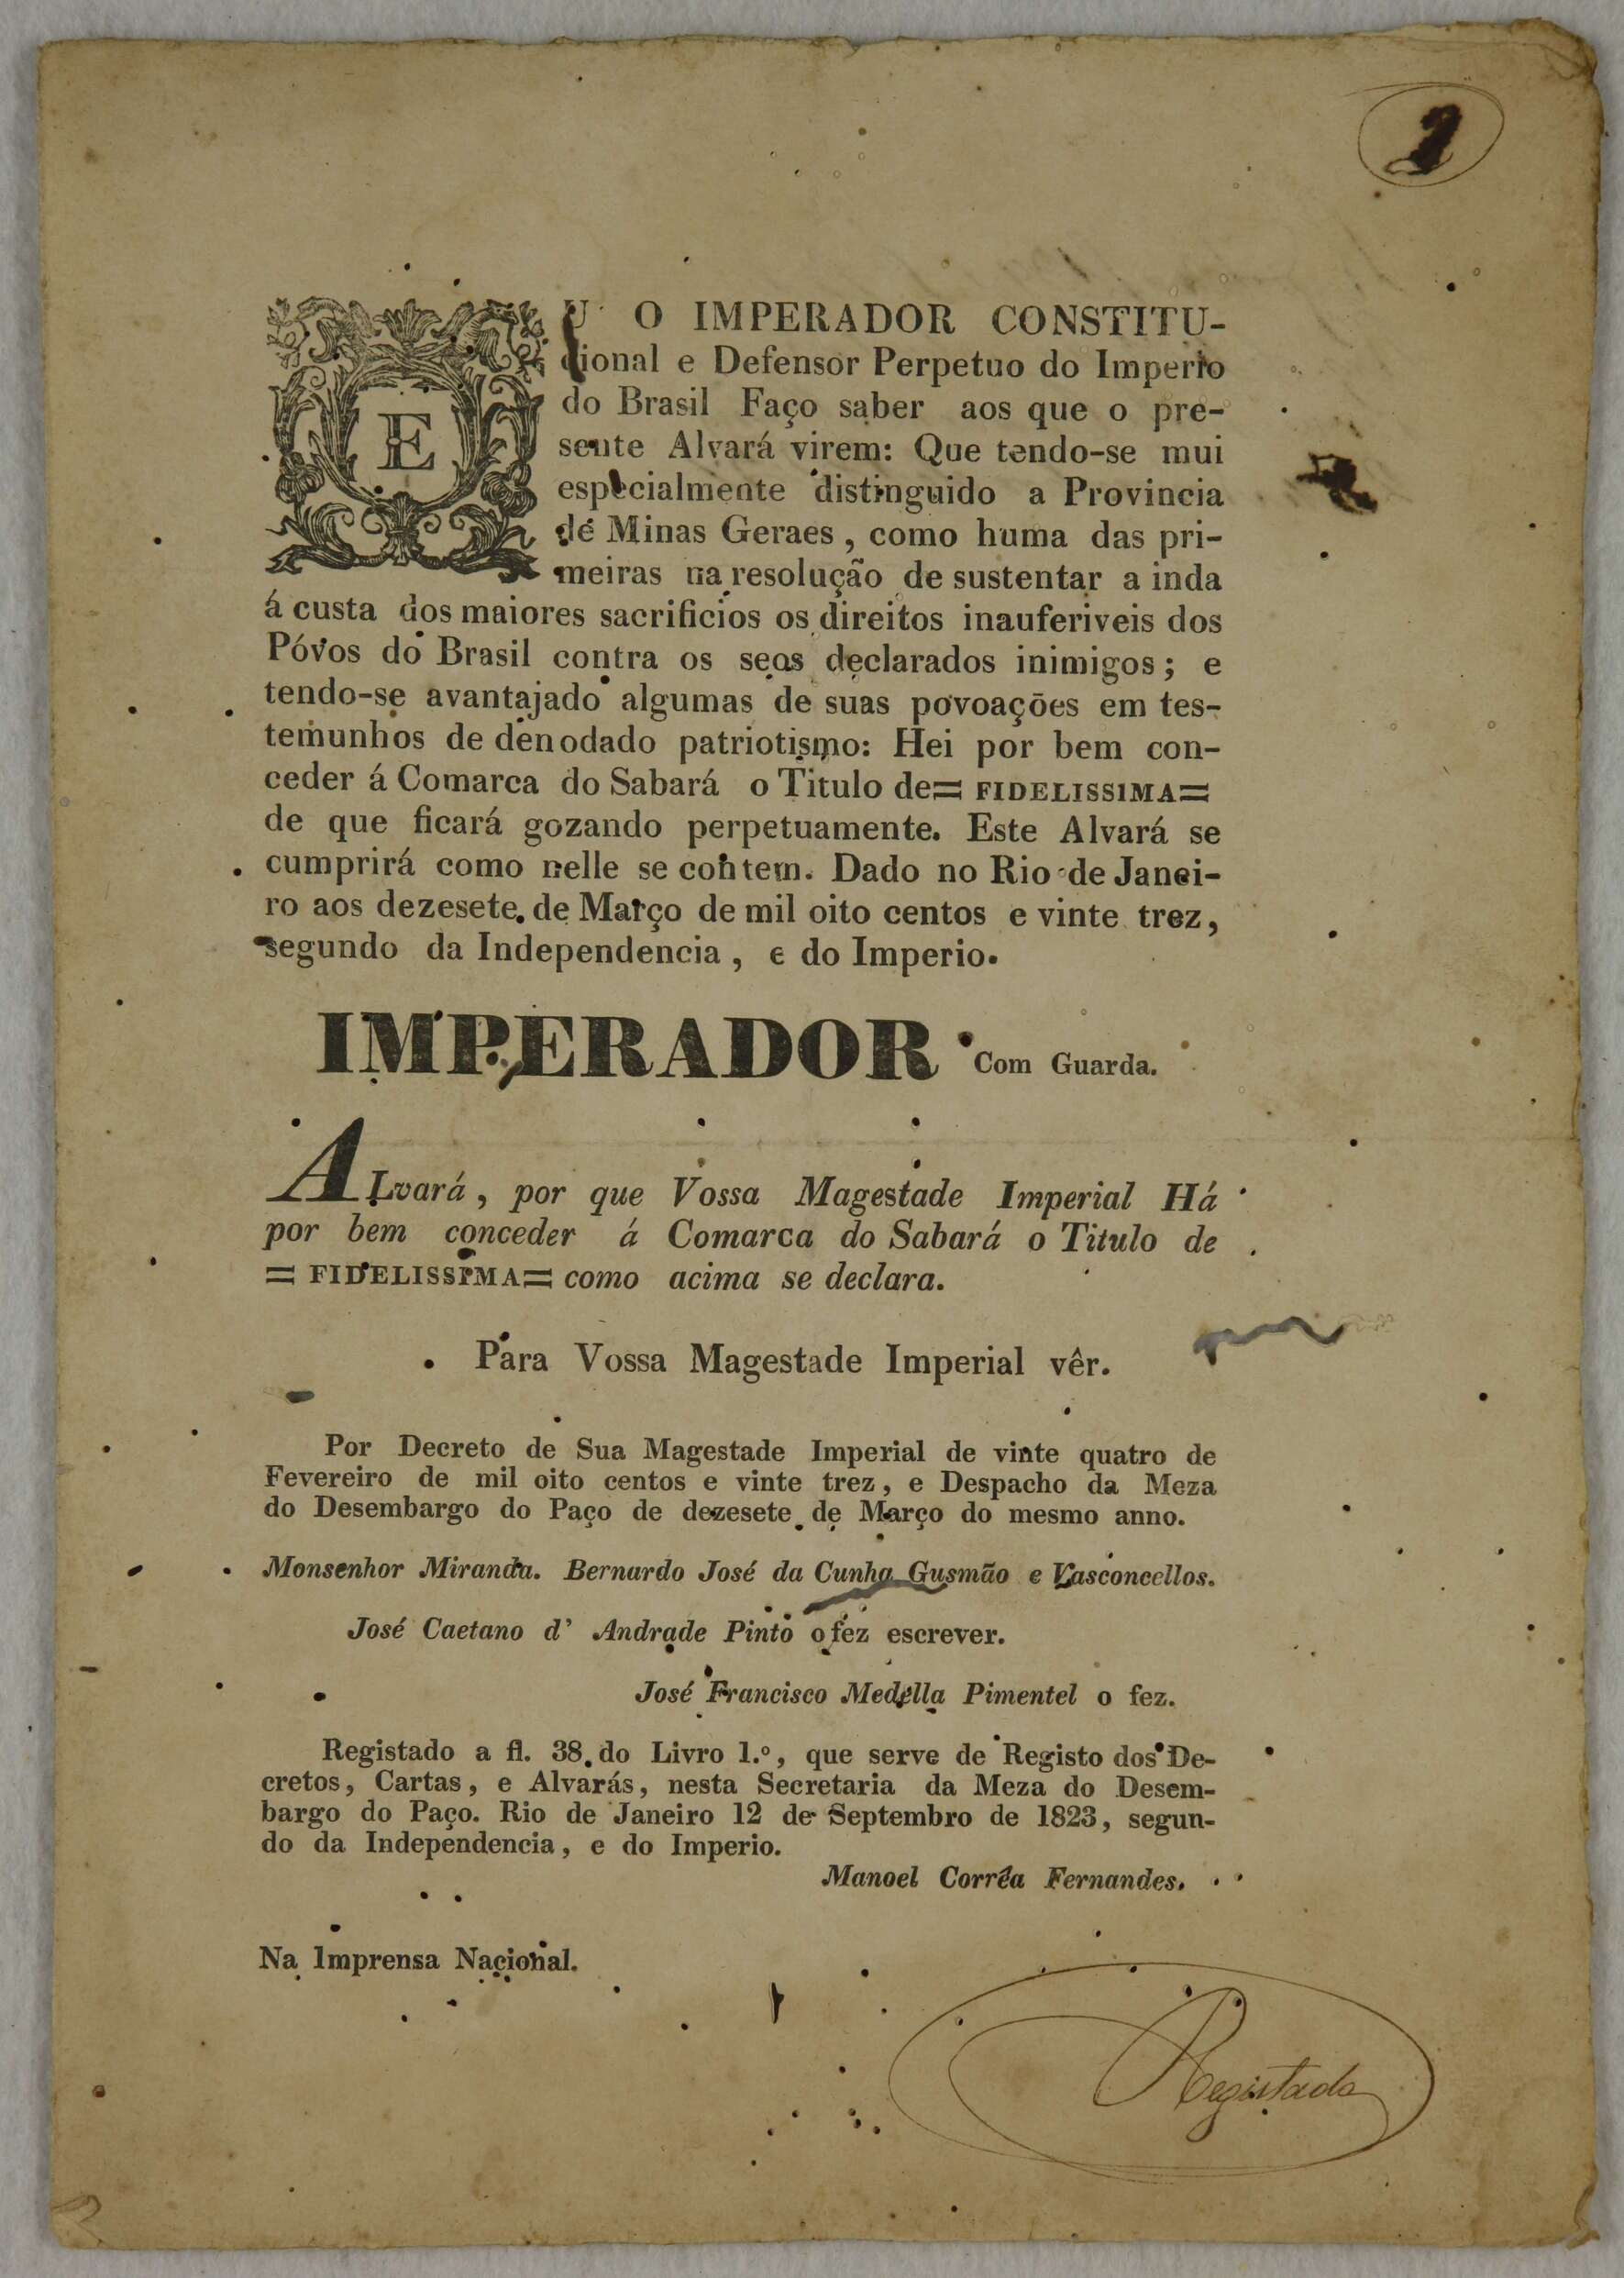 EU O IMPERADOR CONSTITU-
cional e Defensor Perpetuo do Imperio
do Brasil Faço saber aos que o pre-
sente Alvará virem: Que tendo-se mui
especialmente distinguido a Provincia
de Minas Geraes, como huma das pri-
meiras na resolução de sustentar a inda
á custa dos maiores sacrificios os direitos inauferiveis dos
Póvos do Brasil contra os seos declarados inimigos; e
tendo-se avantajado algumas de suas povoações em tes-
temunhos de denodado patriotismo: Hei por bem con-
ceder á Comarca do Sabará o Titulo de = FIDELISSIMA =
de que ficará gozando perpetuamente. Este Alvará se
cumprirá como nelle se contem. Dado no Rio de Janei-
ro aos dezesete de Março de mil oito centos e vinte trez,
segundo da Independencia, e do Imperio.
IMPERADOR Com Guarda.
ALvará, por que Vossa Magestade Imperial Há
por bem conceder á Comarca do Sabará o Titulo de
= FIDELISSIMA = como acima se declara.
Para Vossa Magestade Imperial vêr.
Por Decreto de Sua Magestade Imperial de vinte quatro de
Fevereiro de mil oito centos e vinte trez, e Despacho da Meza
do Desembargo do Paço de dezesete de Março do mesmo anno.
Monsenhor Miranda. Bernardo José da Cunha Gusmão e Vasconcellos.
José Caetano d' Andrade Pinto o fez escrever.
José Francisco Medella Pimentel o fez.
Registado a fl. 38. do Livro 1.º, que serve de Registo dos De-
cretos, Cartas, e Alvarás, nesta Secretaria da Meza do Desem-
bargo do Paço. Rio de Janeiro 12 de Septembro de 1823, segun-
do da Independencia, e do Imperio.
Manoel Corrêa Fernandes.
Na Imprensa Nacional.
Registada